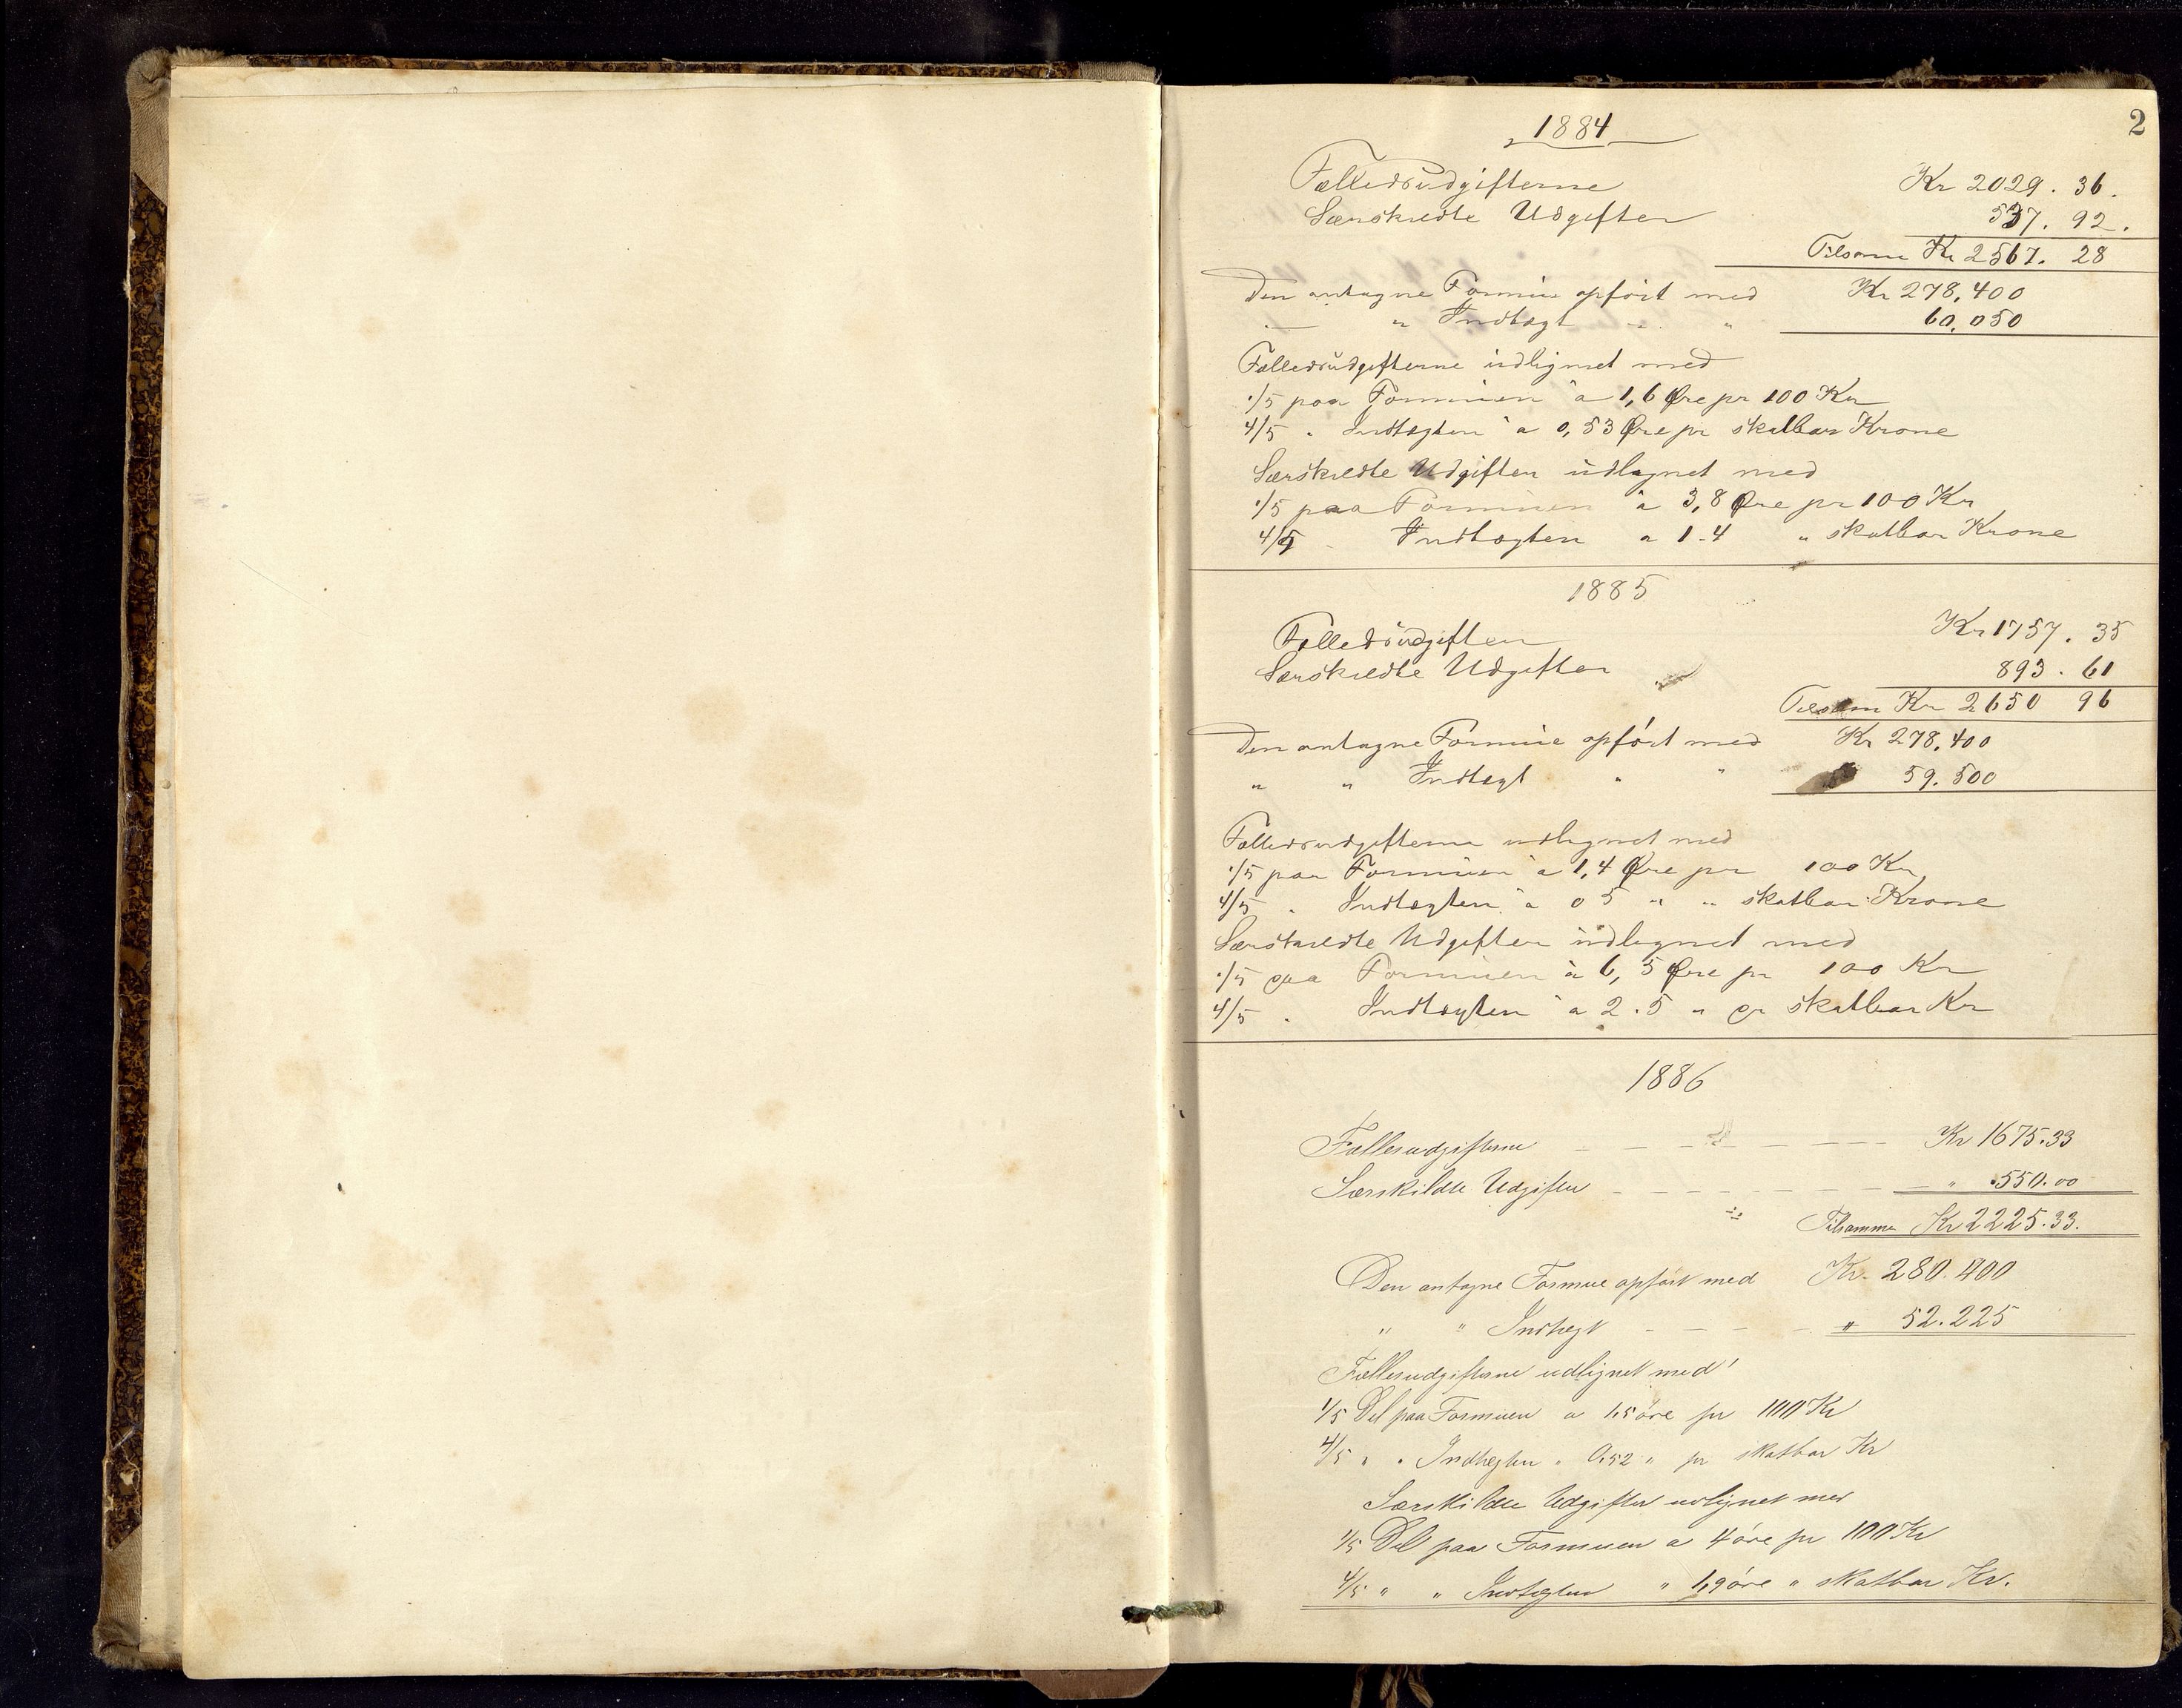 2
1884
Fælledsudgifterne Kr 2029. 36.
Særskildte Udgifter 537. 92.
Tilsam Kr 2567. 28
Den antagne Formue opført med Kr 278,400
" Indtægt - " 60,050
Fælledsudgifterne udlignet med
1/5 paa Formuen à 1,6 Øre pr 100 Kr
4/5 " Indtægten à 0,53 Øre pr skatbar Krone
Særskildte Udgifter udlignet med
1/5 paa Formuen à 3,8 Øre pr 100 Kr
4/5 - Indtægten a 1.4 " skatbar Krone
1885
Fælledsudgifter Kr 1757. 35
Særskildte Udgifter 893. 61
Tilsam Kr 2650 96
Den antagne Formue opført med Kr 278,400
" " Indtægt " " 59.500
Fælledsudgifterne udlignet med
1/5 paa Formuen à 1,4 Øre pr 100 Kr
4/5 " Indtægten à 0 5 " " skatbar Krone
Særskildte Udgifter udlignet med
1/5 paa Formuen à 6,5 Øre pr 100 Kr
4/5 " Indtægten à 2.5 " pr skatbar Kr
1886
Fællesudgifterne Kr 1675.33
Særskildte Udgifter " 550.00
Tilsammen Kr 2225.33.
Den antagne Formue opført med Kr. 280.400
" " Indtægt " 52.225
Fællesudgifterne udlignet med
1/5 Del paa Formuen a 1,5 öre pr 100 Kr
4/5 " " Indtægten " 0,52 " pr skatbar Kr
Særskildte Udgifter udlignet med
1/5 Del paa Formuen a 4 öre pr 100 Kr
4/5 " " Indtægten " 1,9 öre " skatbar Kr.